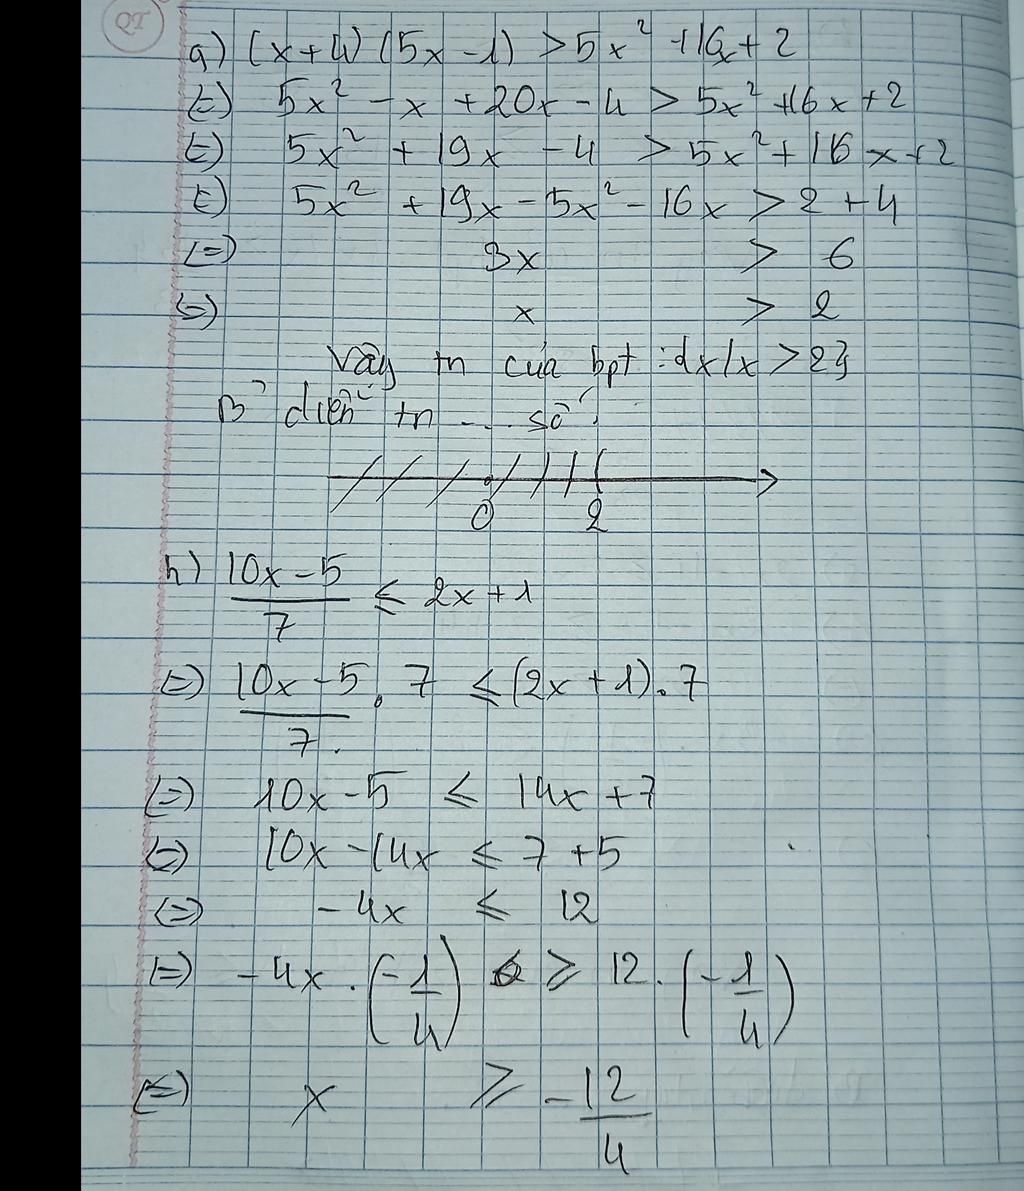 QT
a) (x+4)(5x-1) > 5x² + 16x + 2
<=> 5x² - x + 20x - 4 > 5x² + 16x + 2
<=> 5x² + 19x - 4 > 5x² + 16x + 2
<=> 5x² + 19x - 5x² - 16x > 2 + 4
<=> 3x > 6
<=> x > 2
Vậy tn của bpt : {x/x > 2}
B' diễn tn .... số
0 2
h) (10x-5)/7 ≤ 2x+1
<=> (10x-5)/7 . 7 ≤ (2x+1).7
<=> 10x-5 ≤ 14x+7
<=> 10x-14x ≤ 7+5
<=> -4x ≤ 12
<=> -4x . (-1/4) ≥ 12 . (-1/4)
<=> x ≥ -12/4